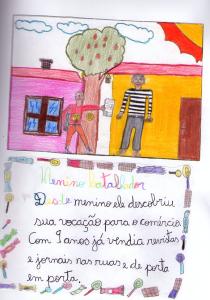 Menino batalhador
Desde menino ele descobriu
sua vocação para o comércio.
Com 9 anos já vendia revistas
e jornais nas ruas e de porta
em porta.